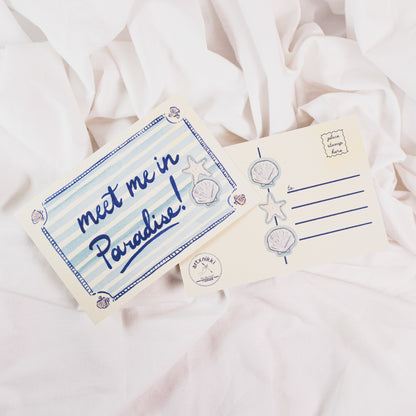 meet me in
Paradise!
place
stamp
here
to: